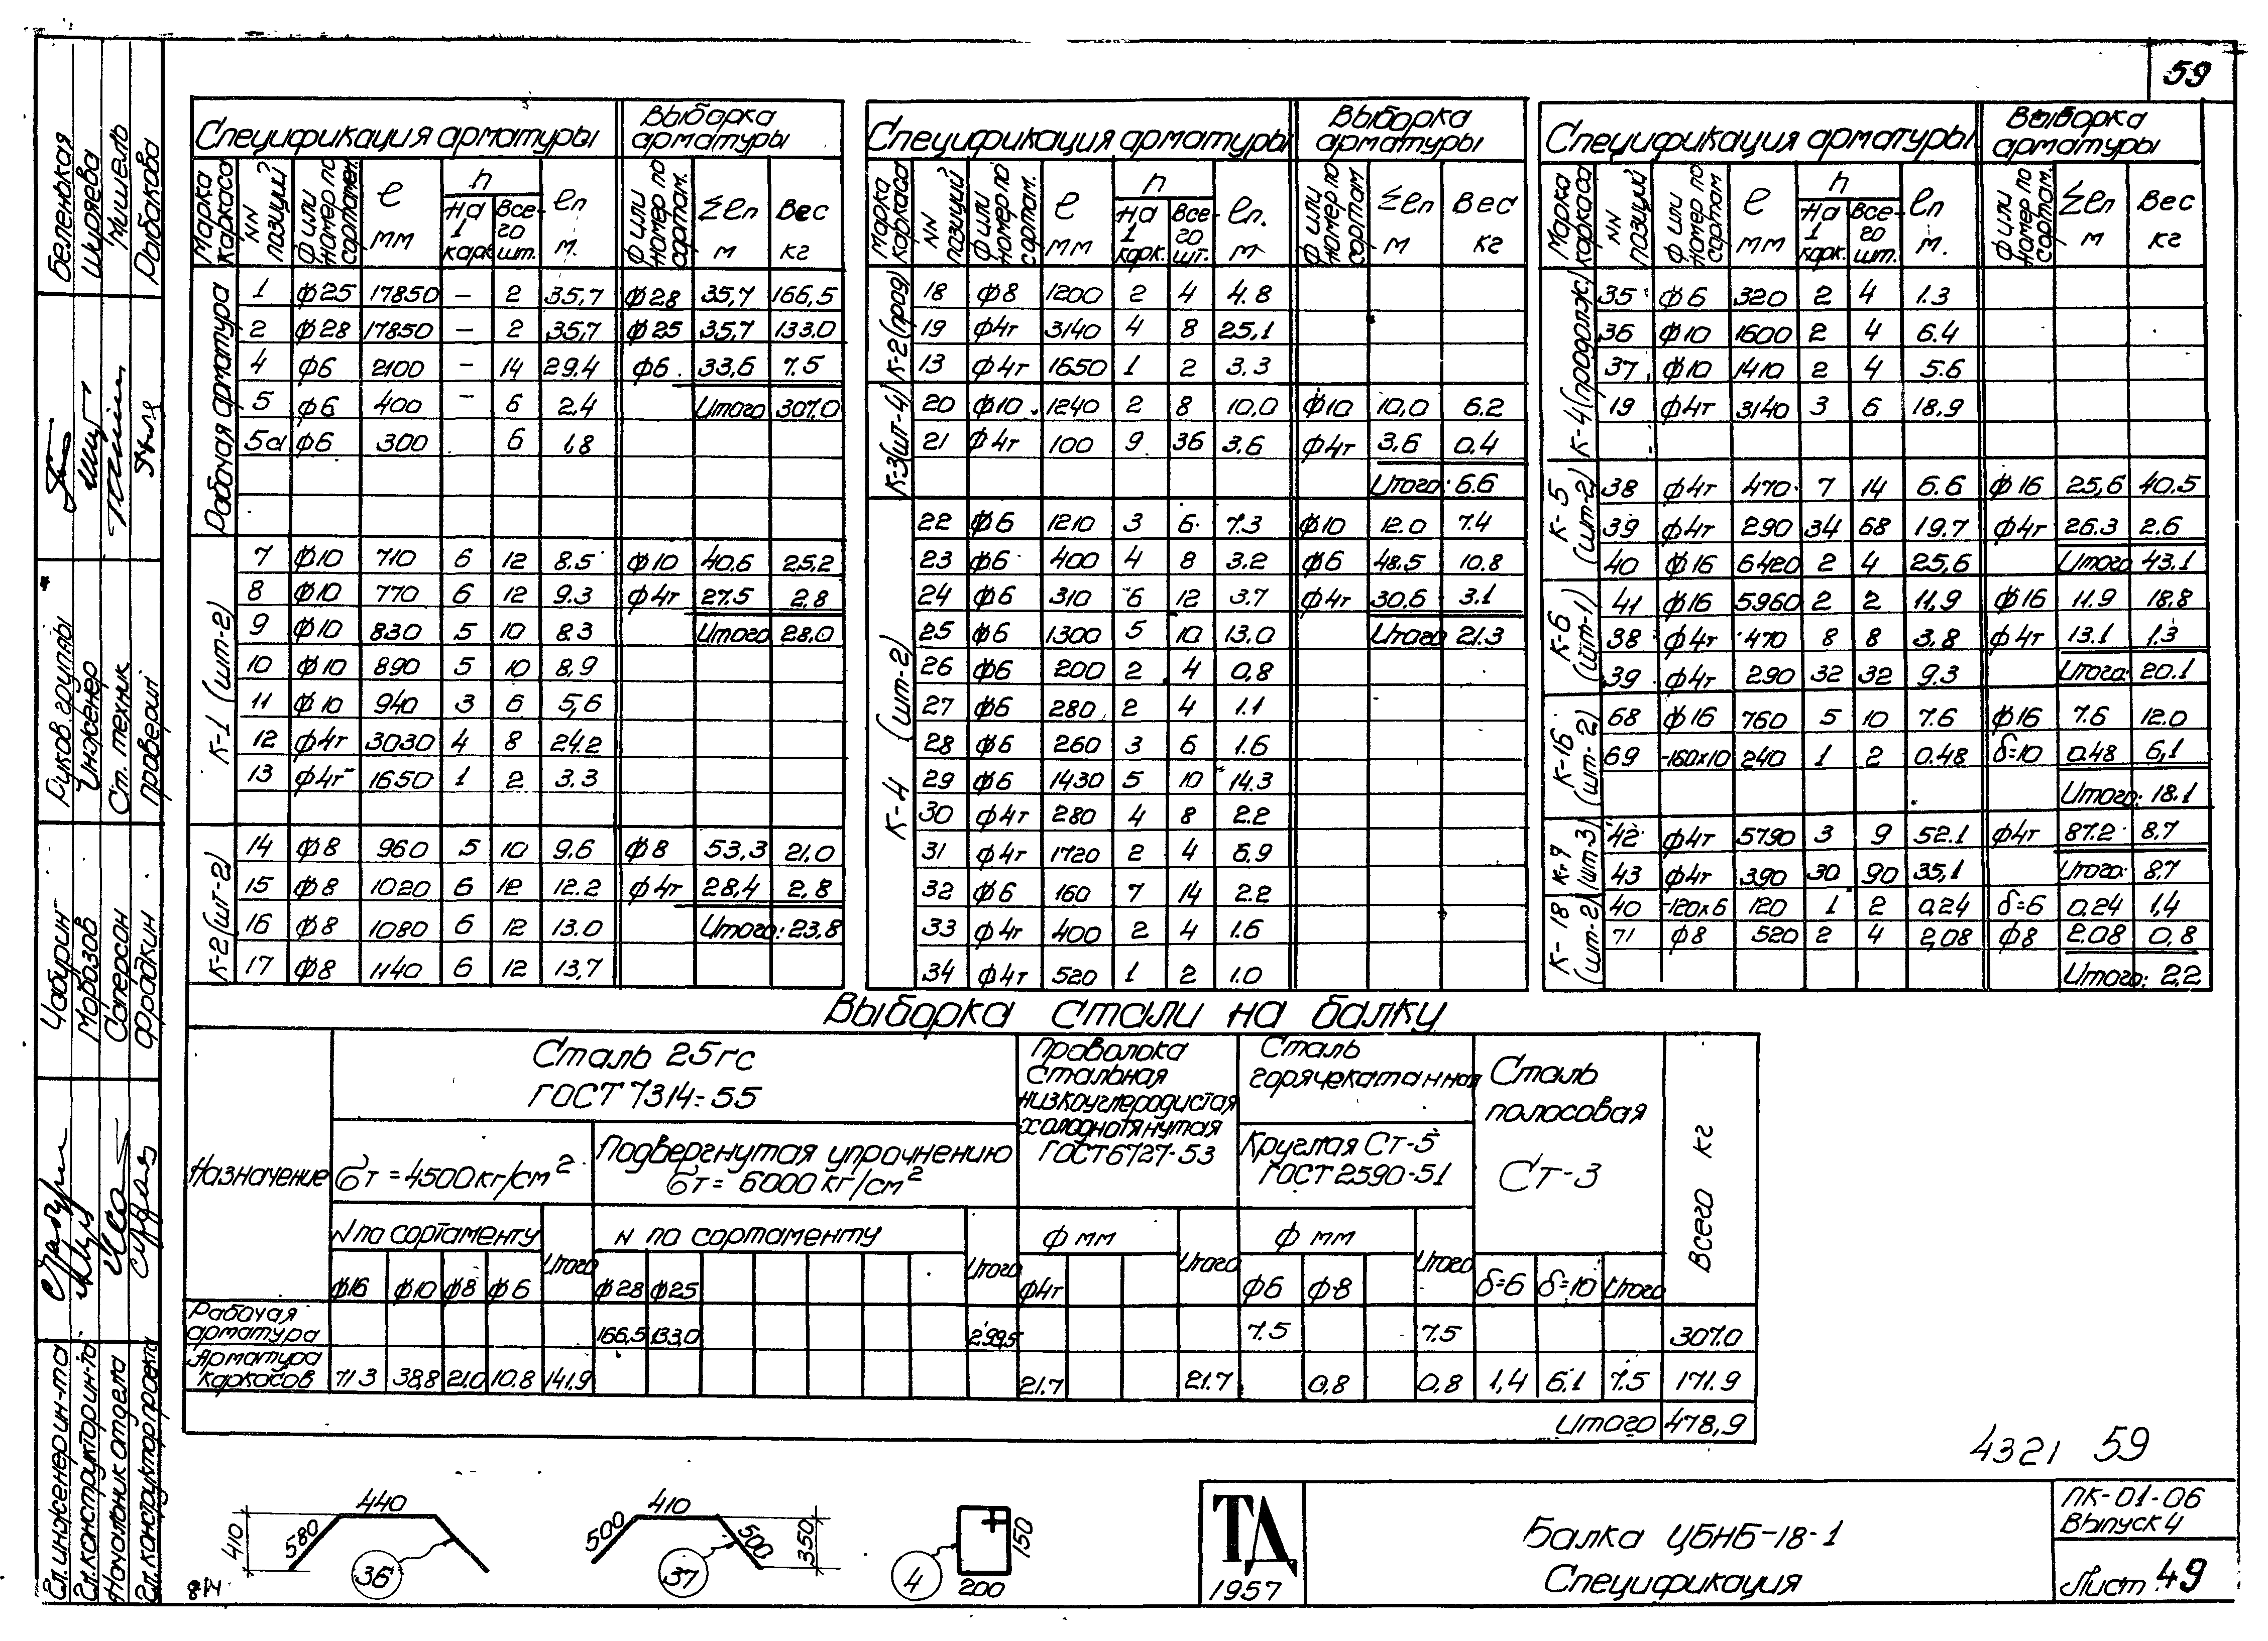 59
Спецификация арматуры Выборка арматуры
Марка каркаса NN позиций Ф или номер по сортамен. ℓ мм n На 1 карк Всего шт. ℓп м. Ф или номер по сортам. Σℓп м Вес кг
Рабочая арматура
1 ф25 17850 – 2 35,7 ф28 35,7 166,5
2 ф28 17850 – 2 35,7 ф25 35,7 133.0
4 ф6 2100 – 14 29.4 ф6 33,6 7.5
5 ф6 400 – 6 2.4 Итого 307.0
5а ф6 300 6 1,8
К-1 (шт-2)
7 ф10 710 6 12 8.5 ф10 40.6 25,2
8 ф10 770 6 12 9.3 ф4т 27.5 2,8
9 ф10 830 5 10 8.3 Итого 28.0
10 ф10 890 5 10 8,9
11 ф10 940 3 6 5,6
12 ф4т 3030 4 8 24.2
13 ф4т 1650 1 2 3.3
К-2 (шт-2)
14 ф8 960 5 10 9.6 ф8 53,3 21,0
15 ф8 1020 6 12 12.2 ф4т 28,4 2,8
16 ф8 1080 6 12 13.0 Итого: 23,8
17 ф8 1140 6 12 13,7
Спецификация арматуры Выборка арматуры
Марка каркаса NN позиций Ф или номер по сортам. ℓ мм n На 1 карк. Всего шт. ℓп. м Ф или номер по сортам Σℓп м Вес кг
К-2 (прод)
18 ф8 1200 2 4 4.8
19 ф4т 3140 4 8 25,1
13 ф4т 1650 1 2 3.3
К-3 (шт-4)
20 ф10 1240 2 8 10,0 ф10 10,0 6.2
21 ф4т 100 9 36 3.6 ф4т 3,6 0.4
Итого: 6.6
К-4 (шт-2)
22 ф6 1210 3 6 7.3 ф10 12.0 7.4
23 ф6 400 4 8 3.2 ф6 48.5 10.8
24 ф6 310 6 12 3.7 ф4т 30.6 3.1
25 ф6 1300 5 10 13.0 Итого 21.3
26 ф6 200 2 4 0,8
27 ф6 280 2 4 1.1
28 ф6 260 3 6 1.6
29 ф6 1430 5 10 14.3
30 ф4т 280 4 8 2.2
31 ф4т 1720 2 4 6,9
32 ф6 160 7 14 2.2
33 ф4т 400 2 4 1.6
34 ф4т 520 1 2 1.0
Спецификация арматуры Выборка арматуры
Марка каркаса NN позиций Ф или номер по сортам ℓ мм n На 1 карк. Всего шт. ℓп м. Ф или номер по сортам. Σℓп м Вес кг
К-4 (продолж)
35 ф6 320 2 4 1.3
36 ф10 1600 2 4 6.4
37 ф10 1410 2 4 5.6
19 ф4т 3140 3 6 18.9
К-5 (шт-2)
38 ф4т 470 7 14 6.6 ф16 25,6 40.5
39 ф4т 290 34 68 19.7 ф4т 26.3 2.6
40 ф16 6420 2 4 25,6 Итого 43.1
К-6 (шт-1)
41 ф16 5960 2 2 11.9 ф16 11.9 18.8
38 ф4т 470 8 8 3.8 ф4т 13.1 1.3
39 ф4т 290 32 32 9.3 Итого: 20.1
К-16 (шт-2)
68 ф16 760 5 10 7.6 ф16 7.6 12.0
69 -160х10 240 1 2 0.48 δ=10 0.48 6,1
Итого: 18.1
К-7 (шт3)
42 ф4т 5790 3 9 52.1 ф4т 87.2 8,7
43 ф4т 390 30 90 35,1 Итого: 8.7
К-18 (шт-2)
40 -120х6 120 1 2 0.24 δ=6 0.24 1,4
71 ф8 520 2 4 2,08 ф8 2.08 0,8
Итого: 2.2
Выборка стали на балку
Назначение
Сталь 25гс
ГОСТ 7314-55
бт = 4500 кг/см²
Подвергнутая упрочнению
бт = 6000 кг/см²
Проволока стальная низкоуглеродистая холоднотянутая ГОСТ 6727-53
Сталь горячекатанная
Круглая Ст-5
ГОСТ 2590-51
Сталь полосовая
Ст-3
Всего кг
N по сортаменту Итого N по сортаменту Итого ф мм Итого ф мм Итого
ф16 ф10 ф8 ф6 ф28 ф25 ф4т ф6 ф8 δ=6 δ=10 Итого
Рабочая арматура 166,5 133,0 299,5 7.5 7.5 307.0
Арматура каркасов 71.3 38,8 21.0 10.8 141.9 21.7 21.7 0,8 0,8 1,4 6.1 7.5 171.9
Итого 478,9
4321 59
410 580 440 36
500 410 500 350 37
4 200 150
ТД
1957
Балка ЦБНБ-18-1
Спецификация
ПК-01-06
Выпуск 4
Лист 49
Гл. инженер ин-та Чабурин Руков. группы Беленькая
Гл. конструктор ин-та Морозов Инженер Ширяева
Начальник отдела Саперсон Ст. техник Мишель
Гл. конструктор проекта Фрадкин проверил Рыбакова